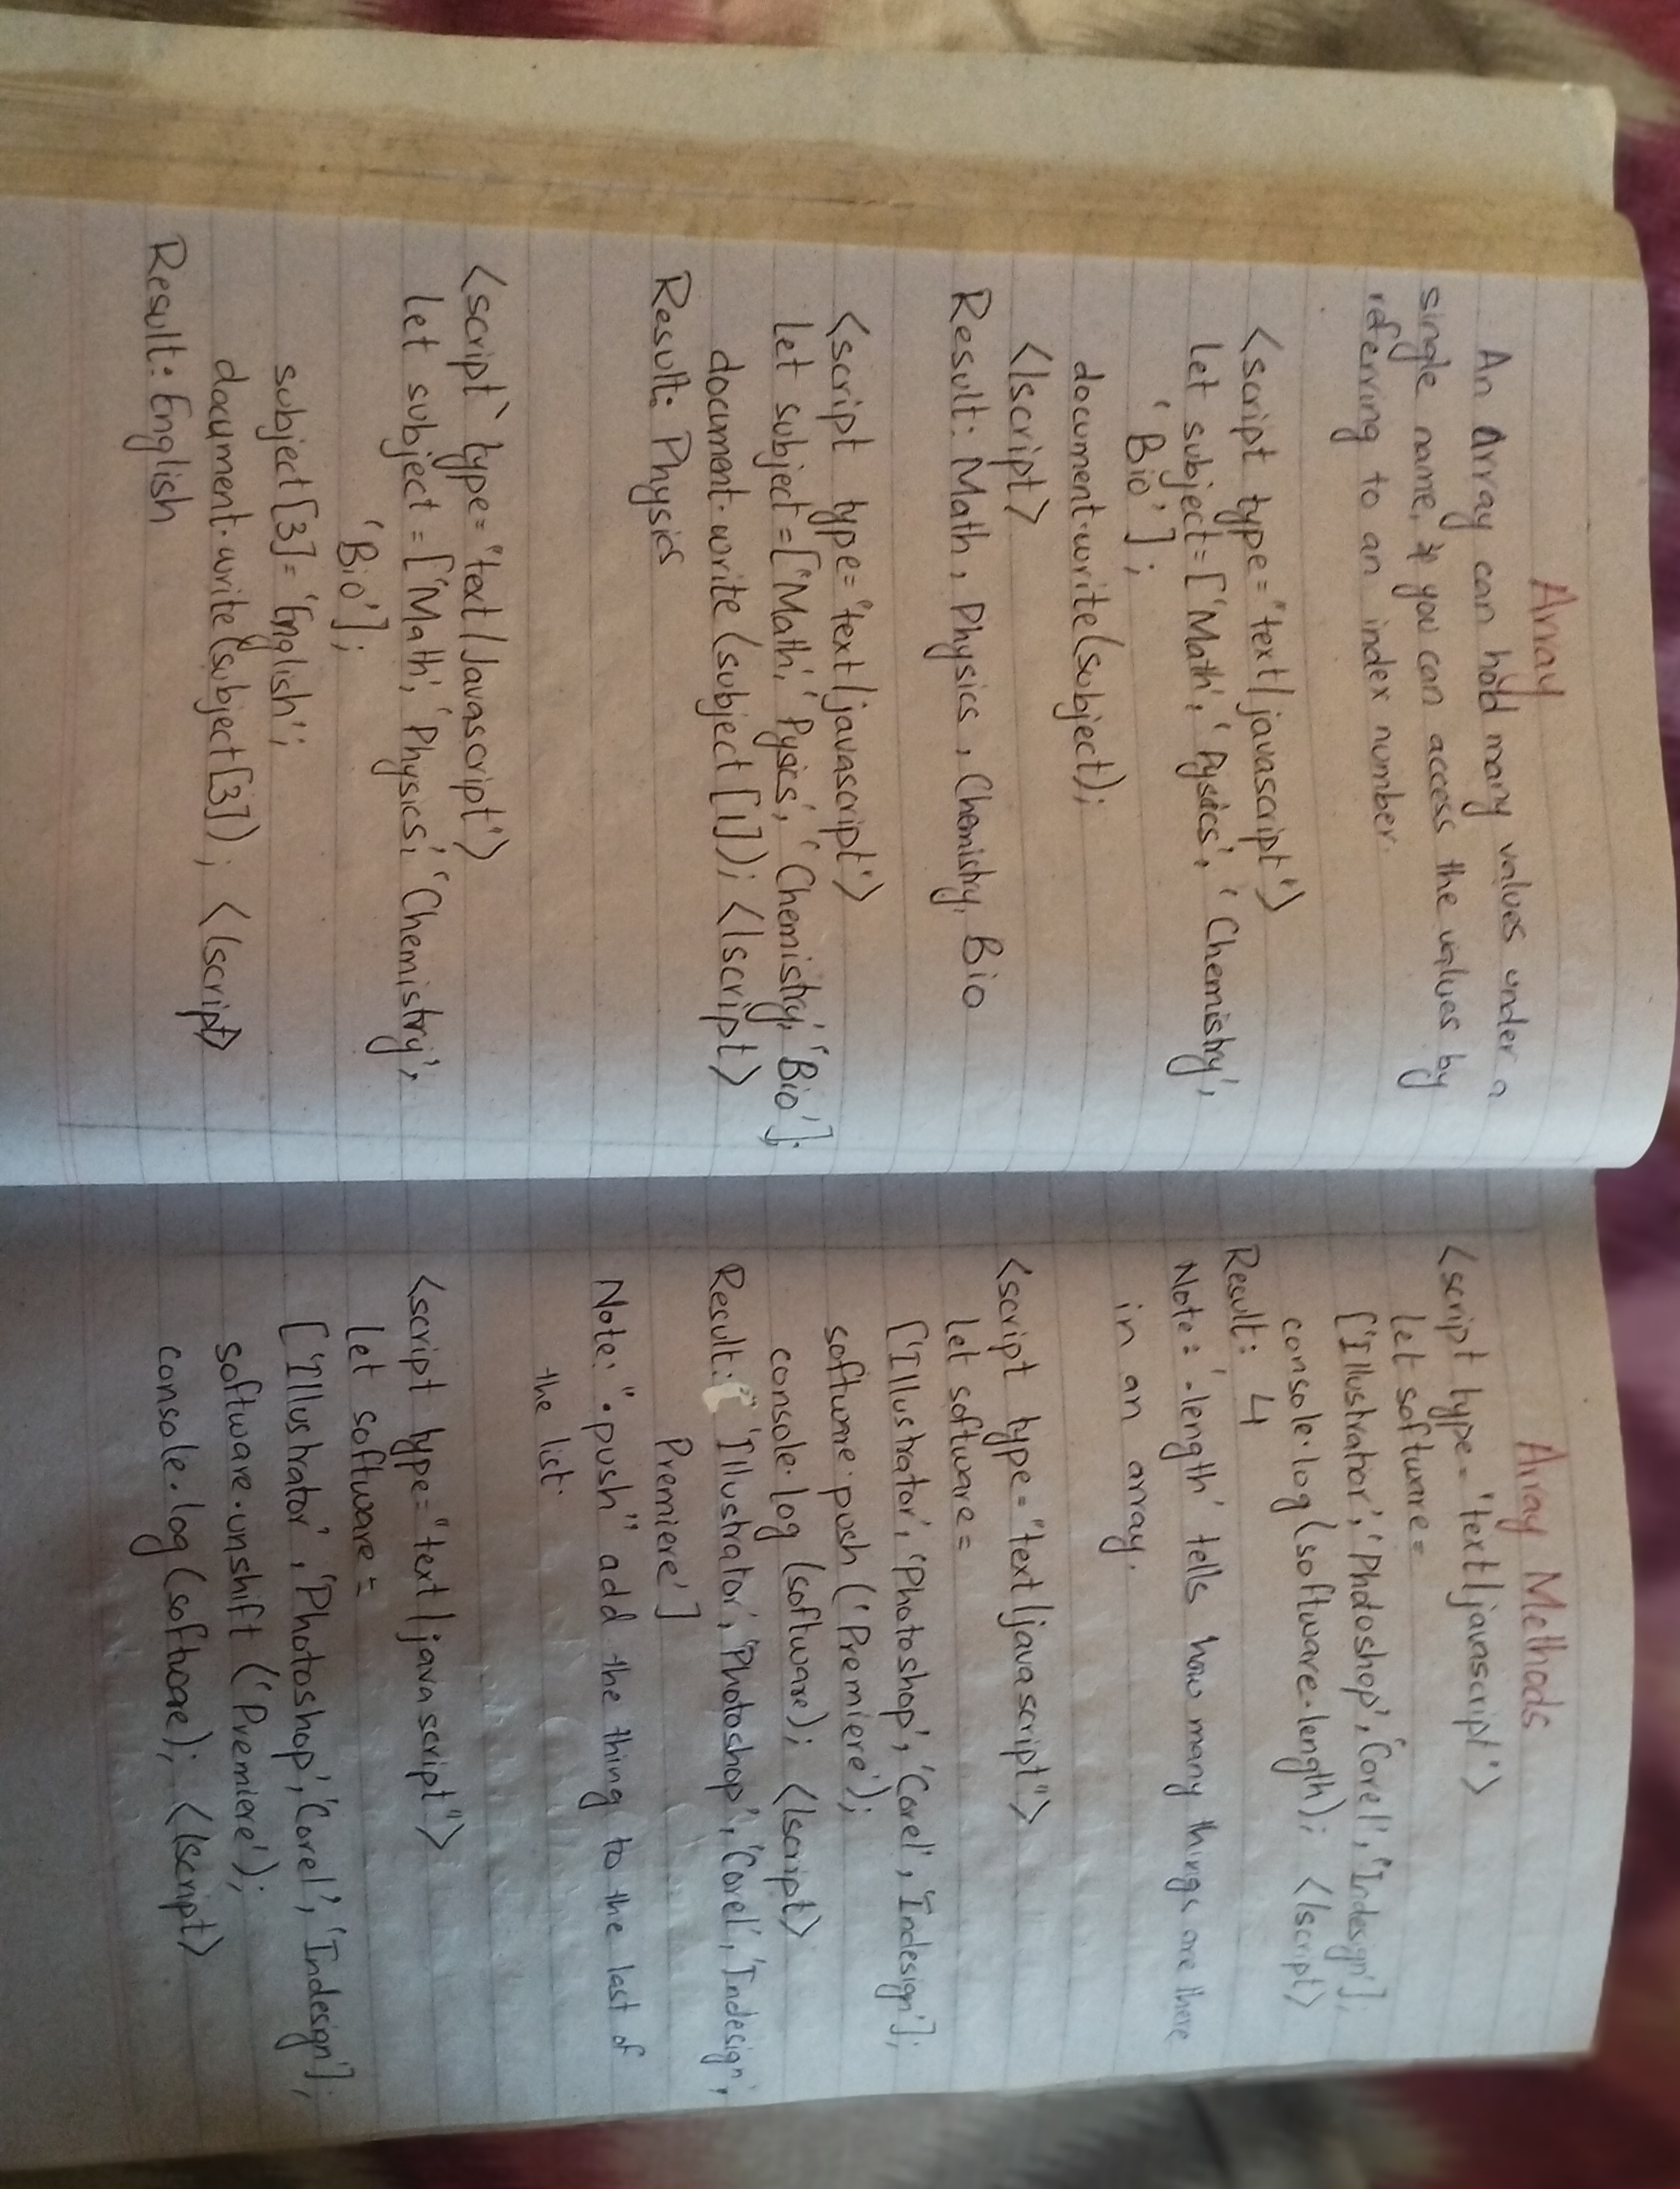 Array
An Array can hold many values under a
single name, you can access the values by
referring to an index number.
<script type="text/javascript">
let subject=['Math','Pysics','Chemistry',
'Bio'];
document.write(subject);
</script>
Result: Math, Physics, Chemistry, Bio
<script type="text/javascript">
let subject=['Math','Pysics','Chemistry','Bio'];
document.write(subject[1]); </script>
Result: Physics
<script type="text/Javascript">
let subject=['Math','Physics','Chemistry',
'Bio'];
subject[3]='English';
document.write(subject[3]); </script>
Result: English
Array Methods
<script type="text/javascript">
let software=
['Illustrator','Photoshop','Corel','Indesign'];
console.log(software.length); </script>
Result: 4
Note: '.length' tells how many things are there
in an array.
<script type="text/javascript">
let software=
['Illustrator','Photoshop','Corel','Indesign'];
softwme.push('Premiere');
console.log(software); </script>
Result: 'Illustrator','Photoshop','Corel','Indesign',
Premiere']
Note: ".push" add the thing to the last of
the list.
<script type="text/javascript">
let software=
['Illustrator','Photoshop','Corel','Indesign'];
software.unshift('Premiere');
console.log(software); </script>